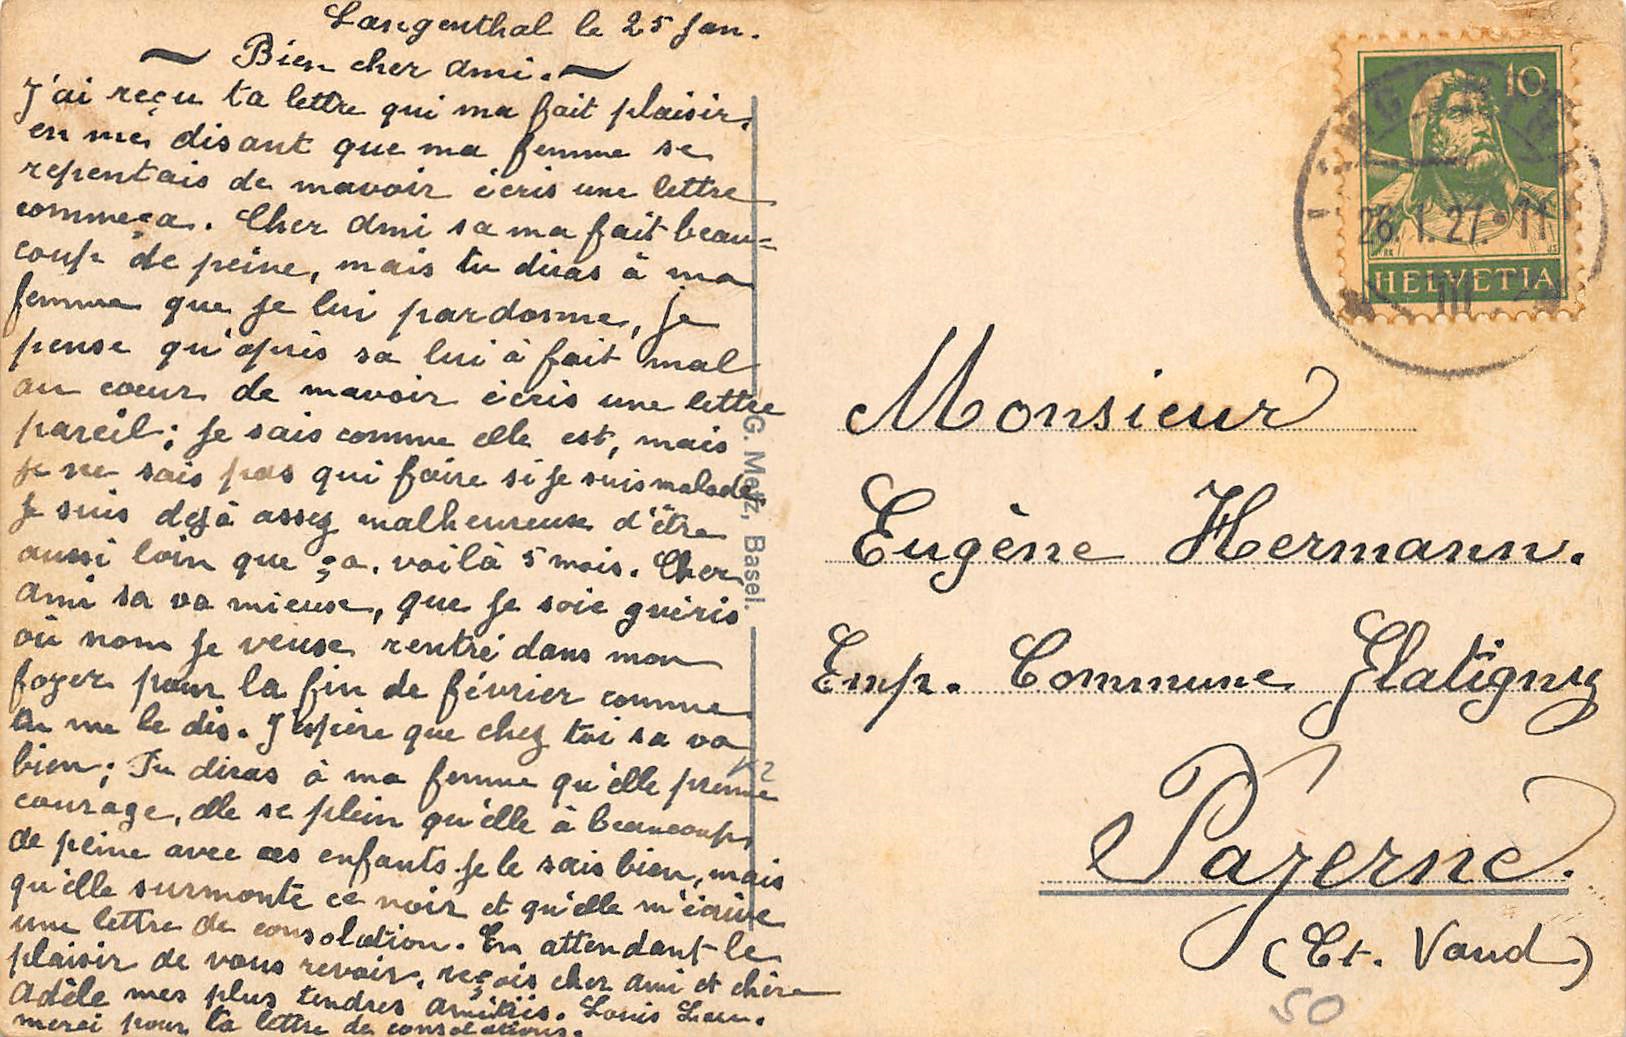 Langenthal le 25 Jan.
Bien cher Ami.
J'ai reçu ta lettre qui ma fait plaisir,
en me disant que ma femme se
repentais de mavoir écris une lettre
comme ça. Cher Ami sa ma fait beau=
coup de peine, mais tu diras à ma
femme que je lui pardonne, je
pense qu'après sa lui à fait mal
au coeur de mavoir écris une lettre
pareil; je sais comme elle est, mais
je ne sais pas qui faire si je suis malade,
je suis dejà assez malheureuse d'être
aussi loin que ça, voilà 5 mois. Cher
Ami sa va mieuse, que je soie guéris
où nom je veuse rentré dans mon
foyer pour la fin de février comme
tu me le dis. J'espère que chez toi sa va
bien; Tu diras à ma femme qu'elle prenne
courage, elle se plein qu'elle à beaucoup
de peine avec ces enfants je le sais bien, mais
qu'elle surmonte ce noir et qu'elle m'écrive
une lettre de consolation. En attendant le
plaisir de vous revoir, reçois cher ami et chère
Adèle mes plus tendres amitiés. Louis
merci pour ta lettre de consolations.
G. Metz, Basel.
10
HELVETIA
26.1.27.-11
III
Monsieur
Eugène Hermann.
Emp. Commune Glatigny
Payerne.
(Ct. Vaud)
50